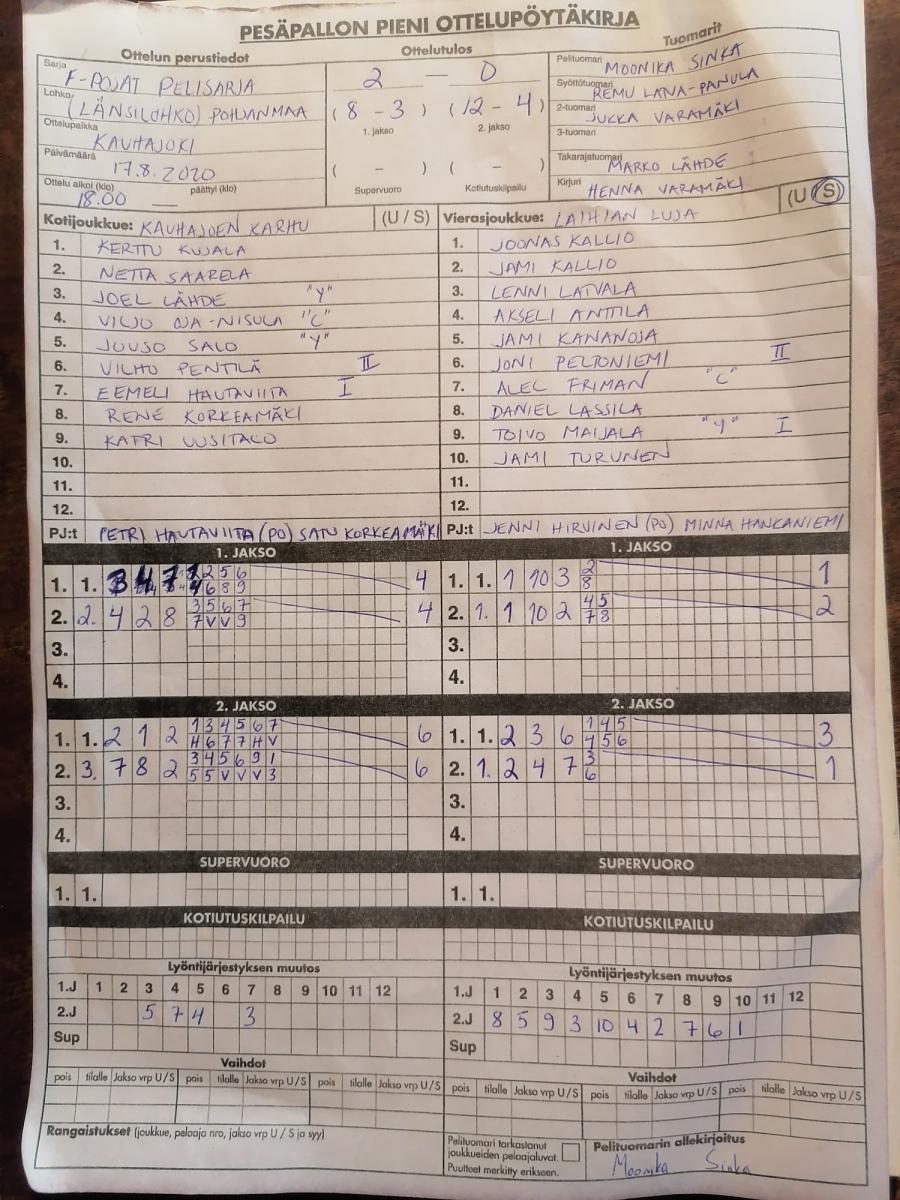 PESÄPALLON PIENI OTTELUPÖYTÄKIRJA
Ottelun perustiedot
Sarja F-POJAT PELISARJA
Lohko (LÄNSILOHKO) POHJANMAA
Ottelupaikka KAUHAJOKI
Päivämäärä 17.8.2020
Ottelu alkoi (klo) 18.00 päättyi (klo) —
Ottelutulos
2 — 0
(8 - 3) (12 - 4)
1. jakso 2. jakso
( - ) ( - )
Supervuoro Kotiutuskilpailu
Tuomarit
Pelituomari MOONIKA SINKA
Syöttötuomari REMU LANA-PANULA
2-tuomari JUKKA VARAMÄKI
3-tuomari
Takarajatuomari MARKO LÄHDE
Kirjuri HENNA VARAMÄKI
Kotijoukkue: KAUHAJOEN KARHU (U / S)
1. KERTTU KUJALA
2. NETTA SAARELA
3. JOEL LÄHDE "Y"
4. VILJO OJA-NISULA "C"
5. JUUSO SALO "Y"
6. VILHO PENTILÄ II
7. EEMELI HAUTAVIITA I
8. RENE KORKEAMÄKI
9. KATRI UUSITALO
10.
11.
12.
PJ:t PETRI HAUTAVIITA (PO) SATU KORKEAMÄKI
Vierasjoukkue: LAIHIAN LUJA (U / S)
1. JOONAS KALLIO
2. JAMI KALLIO
3. LENNI LATVALA
4. AKSELI ANTTILA
5. JAMI KANANOJA
6. JONI PELTONIEMI II
7. ALEC FRIMAN "C"
8. DANIEL LASSILA
9. TOIVO MAIJALA "Y" I
10. JAMI TURUNEN
11.
12.
PJ:t JENNI HIRVINEN (PO) MINNA HANKANIEMI
1. JAKSO
1. 1. 3 4 7 2 5 6 4
4 6 8 9
2. 2. 4 2 8 3 5 6 7 4
7 V V 9
3.
4.
1. JAKSO
1. 1. 1 10 3 2 1
8
2. 1. 1 10 2 4 5 2
7 8
3.
4.
2. JAKSO
1. 1. 2 1 2 1 3 4 5 6 7 6
H 6 7 7 H V
2. 3. 7 8 2 3 4 5 6 9 1 6
5 5 V V V 3
3.
4.
2. JAKSO
1. 1. 2 3 6 1 4 5 3
4 5 6
2. 1. 2 4 7 3 1
6
3.
4.
SUPERVUORO
1. 1.
SUPERVUORO
1. 1.
KOTIUTUSKILPAILU
KOTIUTUSKILPAILU
Lyöntijärjestyksen muutos
1.J 1 2 3 4 5 6 7 8 9 10 11 12
2.J 5 7 4 3
Sup
Lyöntijärjestyksen muutos
1.J 1 2 3 4 5 6 7 8 9 10 11 12
2.J 8 5 9 3 10 4 2 7 6 1
Sup
Vaihdot
pois tilalle Jakso vrp U/S pois tilalle Jakso vrp U/S pois tilalle Jakso vrp U/S
Vaihdot
pois tilalle Jakso vrp U/S pois tilalle Jakso vrp U/S pois tilalle Jakso vrp U/S
Rangaistukset (joukkue, pelaaja nro, jakso vrp U / S ja syy)
Pelituomari tarkastanut
joukkueiden pelaajaluvat.
Puutteet merkitty erikseen.
Pelituomarin allekirjoitus
Moonika Sinka